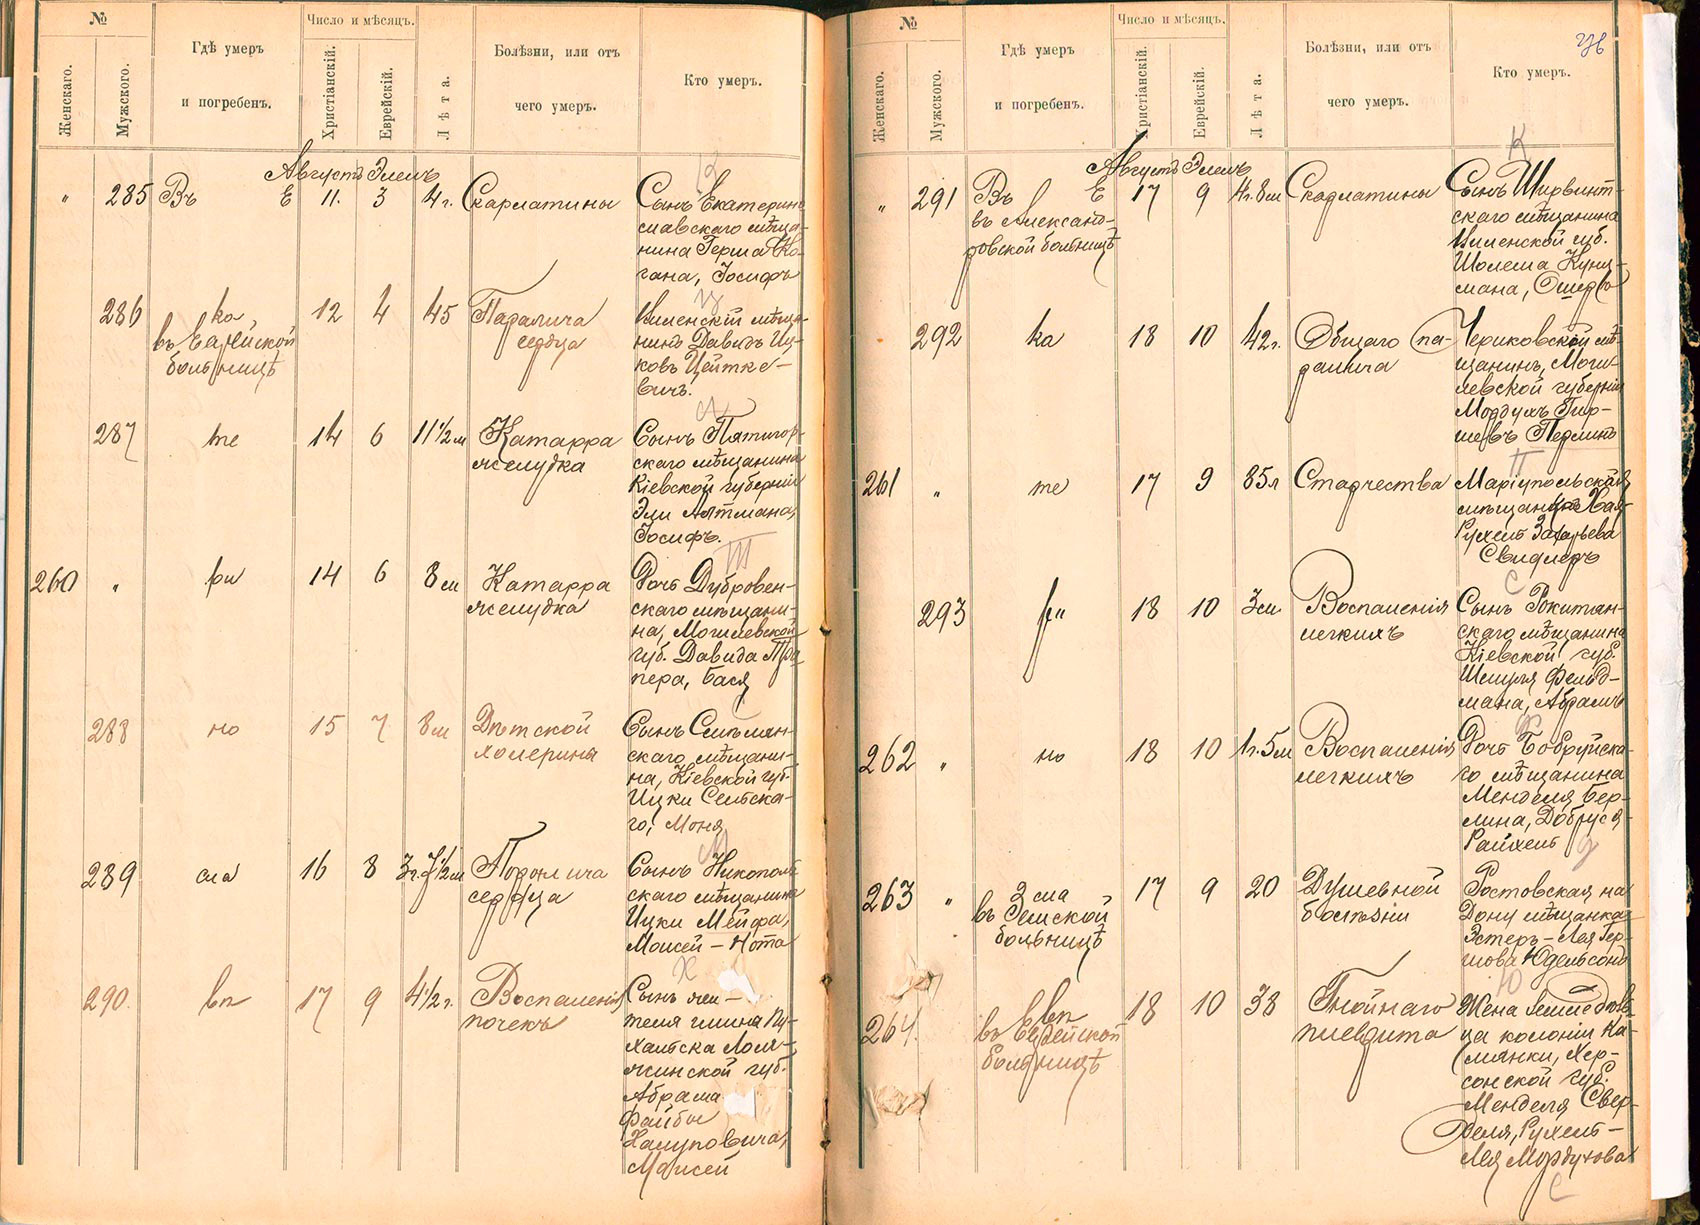 №
Женскаго.
Мужского.
Гдѣ умеръ
и погребенъ.
Число и мѣсяцъ.
Христіанскій.
Еврейскій.
Лѣта.
Болѣзни, или отъ
чего умеръ.
Кто умеръ.
Августъ Элелъ
" 285 Въ Е 11. 3 4 г. Скарлатины
Сынъ Екатерино
славскаго мѣща-
нина Герша Ко-
гана, Іосифъ
286 ка 12 4 45 Паралича
въ Еврейской
больницѣ
сердца
Виленскій мѣща-
нинъ Давидъ Иц-
ковъ Цейтке-
вичъ.
287 те 14 6 11½ м Катарра
желудка
Сынъ Пятигор-
скаго мѣщанина
Кіевской губерніи
Эли Альтмана,
Іосифъ.
260 " ри 14 6 8 м Катарра
желудка
Дочь Дубровен-
скаго мѣщани-
на, Могилевской
губ. Давида
пера, Бася
288 но 15 7 8 м Дѣтской
холерины
Сынъ Смѣлян-
скаго мѣщани-
на, Кіевской губ.
Ицки Сельска-
го, Моня
289 сла 16 8 3 г. 7½ м Паралича
сердца
Сынъ Никополь
скаго мѣщанина
Ицки Мейфа,
Моисей – Нота
290. вп 17 9 4½ г. Воспаленія
почекъ
Сынъ жи-
теля гмина Пу-
хальска Лом-
жинской губ.
Абрама
Файбы
Халуповича,
Моисей
№
Женскаго.
Мужского.
Гдѣ умеръ
и погребенъ.
Число и мѣсяцъ.
Христіанскій.
Еврейскій.
Лѣта.
Болѣзни, или отъ
чего умеръ.
Кто умеръ.
К
Августъ Элелъ
" 291 Въ Е 17 9 4 г. 8 м Скарлатины
въ Александ-
ровской больницѣ
Сынъ Ширвинт-
скаго мѣщанина
Виленской губ.
Шолема Кунц-
мана, Ошеръ
292 ка 18 10 42 г. Общаго па-
ралича
Чериковскій мѣ-
щанинъ, Моги-
левской губерніи
Мордухъ Гир-
шевъ Перлинъ
П
261 " те 17 9 85 л Старчества
Маріупольская
мѣщанка Хая-
Рухель
Свидлеръ
С
293 ри 18 10 3 м Воспаленія
легкихъ
Сынъ Рокитян-
скаго мѣщанина
Кіевской губ.
Шмуля Фельд-
мана, Абрамъ
Ф
262 " но 18 10 1 г. 5 м Воспаленія
легкихъ
Дочь Бобруйска-
го мѣщанина
Менделя Бер-
лина, Добруся-
Райхель
263 " сла 17 9 20 Душевной
въ Земской
больницѣ
болѣзни
Ростовская на
Дону мѣщанка
Эстеръ – Лея Гер-
шова Юдельсонъ
Ю
264. вп 18 10 38 Гнойнаго
въ Еврейской
больницѣ
плеврита
Жена
ца колоніи Ка-
мянки, Хер-
сонской губ.
Менделя Свер-
деля, Рухель –
Лея Мордухова
С